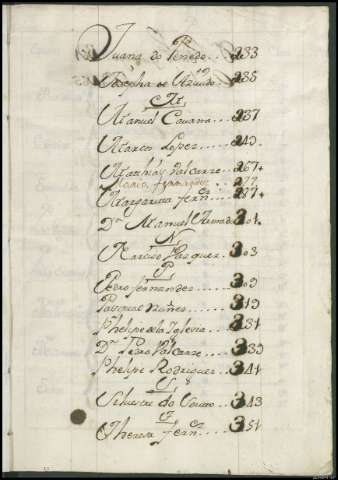 Juana do Penedo...233
Josepha de Azevedo 235
M
Manuel Cavana...237
Marcos Lopez...249
Mathias Valcarze...267+
Maria Fernandez...272
Margarita Fern.ez...287+
D.n Manuel 301
N
Narciso Vazquez...303
P
Pedro fernandez...309
Pasqual Nuñes...319
Phelipe de la Iglesia...331
D.n Pedro Valcarze...339
Phelipe Rodriguez...341
S
Silvestre do Couto...343
T
Theresa Fern.ez...351